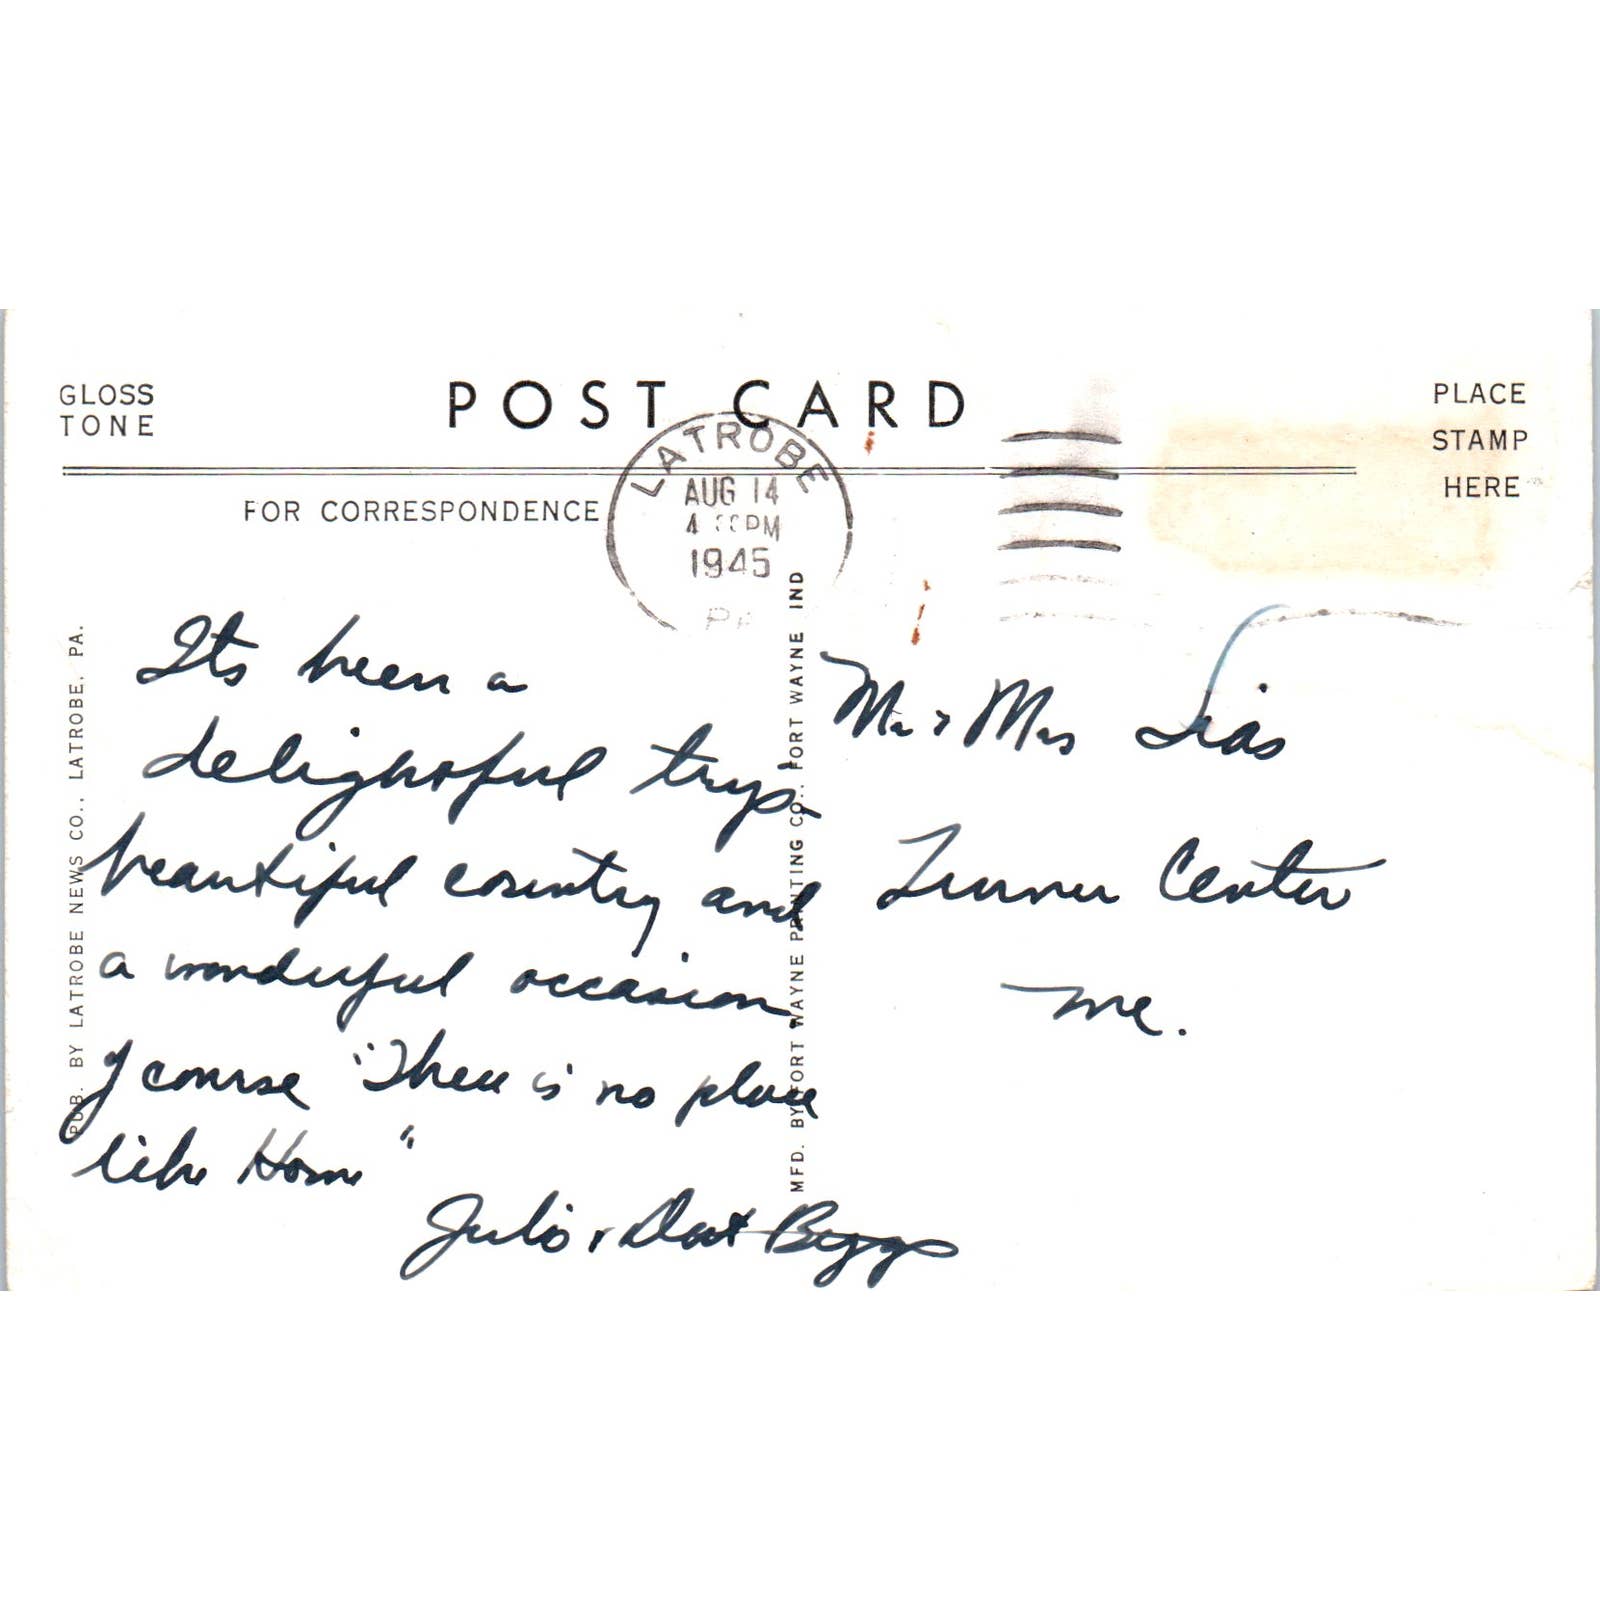 GLOSS
TONE
POST CARD
PLACE
STAMP
HERE
FOR CORRESPONDENCE
LATROBE
AUG 14
4 PM
1945
PA
Its been a
delightful trip
beautiful country and
a wonderful occasion
of course "There is no place
like Home"
Biggs
Mr & Mrs
Turner Center
Me.
PUB. BY LATROBE NEWS CO., LATROBE, PA.
MFD. BY FORT WAYNE PRINTING CO., FORT WAYNE IND